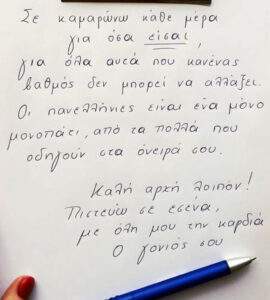 Σε καμαρώνω κάθε μερα
για όσα είσαι,
για όλα αυτά που κανένας
βαθμός δεν μπορεί να αλλάξει.
Οι πανελλήνιες είναι ένα μόνο
μονοπάτι, από τα πολλά που
οδηγούν στα όνειρά σου.
Καλή αρχή λοιπόν!
Πιστεύω σε εσένα,
με όλη μου την καρδιά
Ο γονιός σου